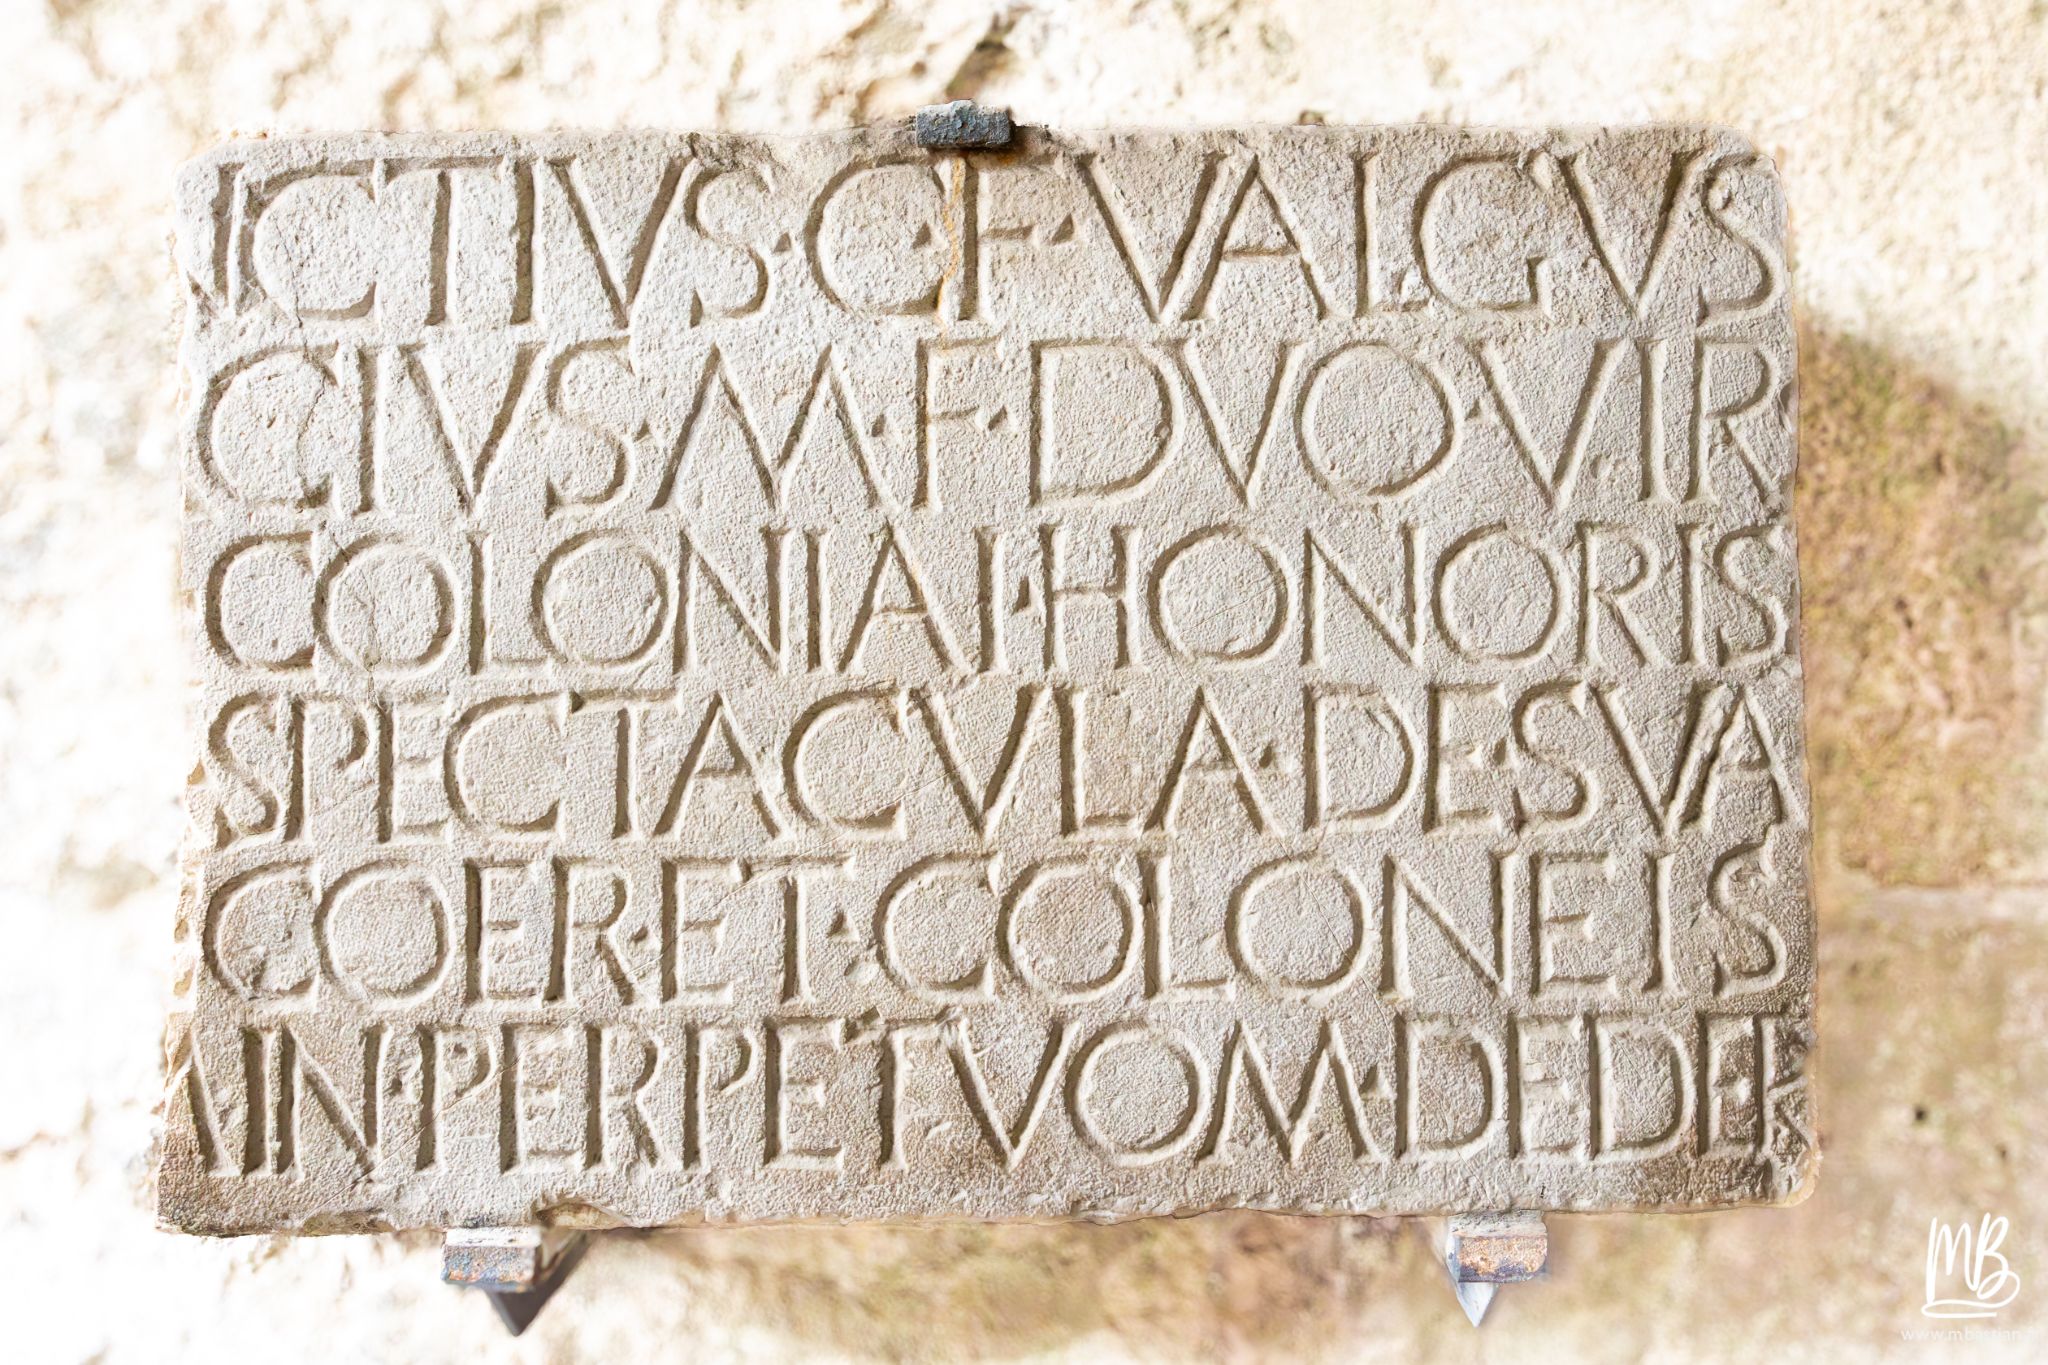 NCTIVS·C·F·VALGVS
CIVS·M·F·DVO·VIR
COLONIAI·HONORIS
SPECTACVLA·DE·SVA
COER·ET·COLONEIS
IN·PERPETVOM·DEDER
MB